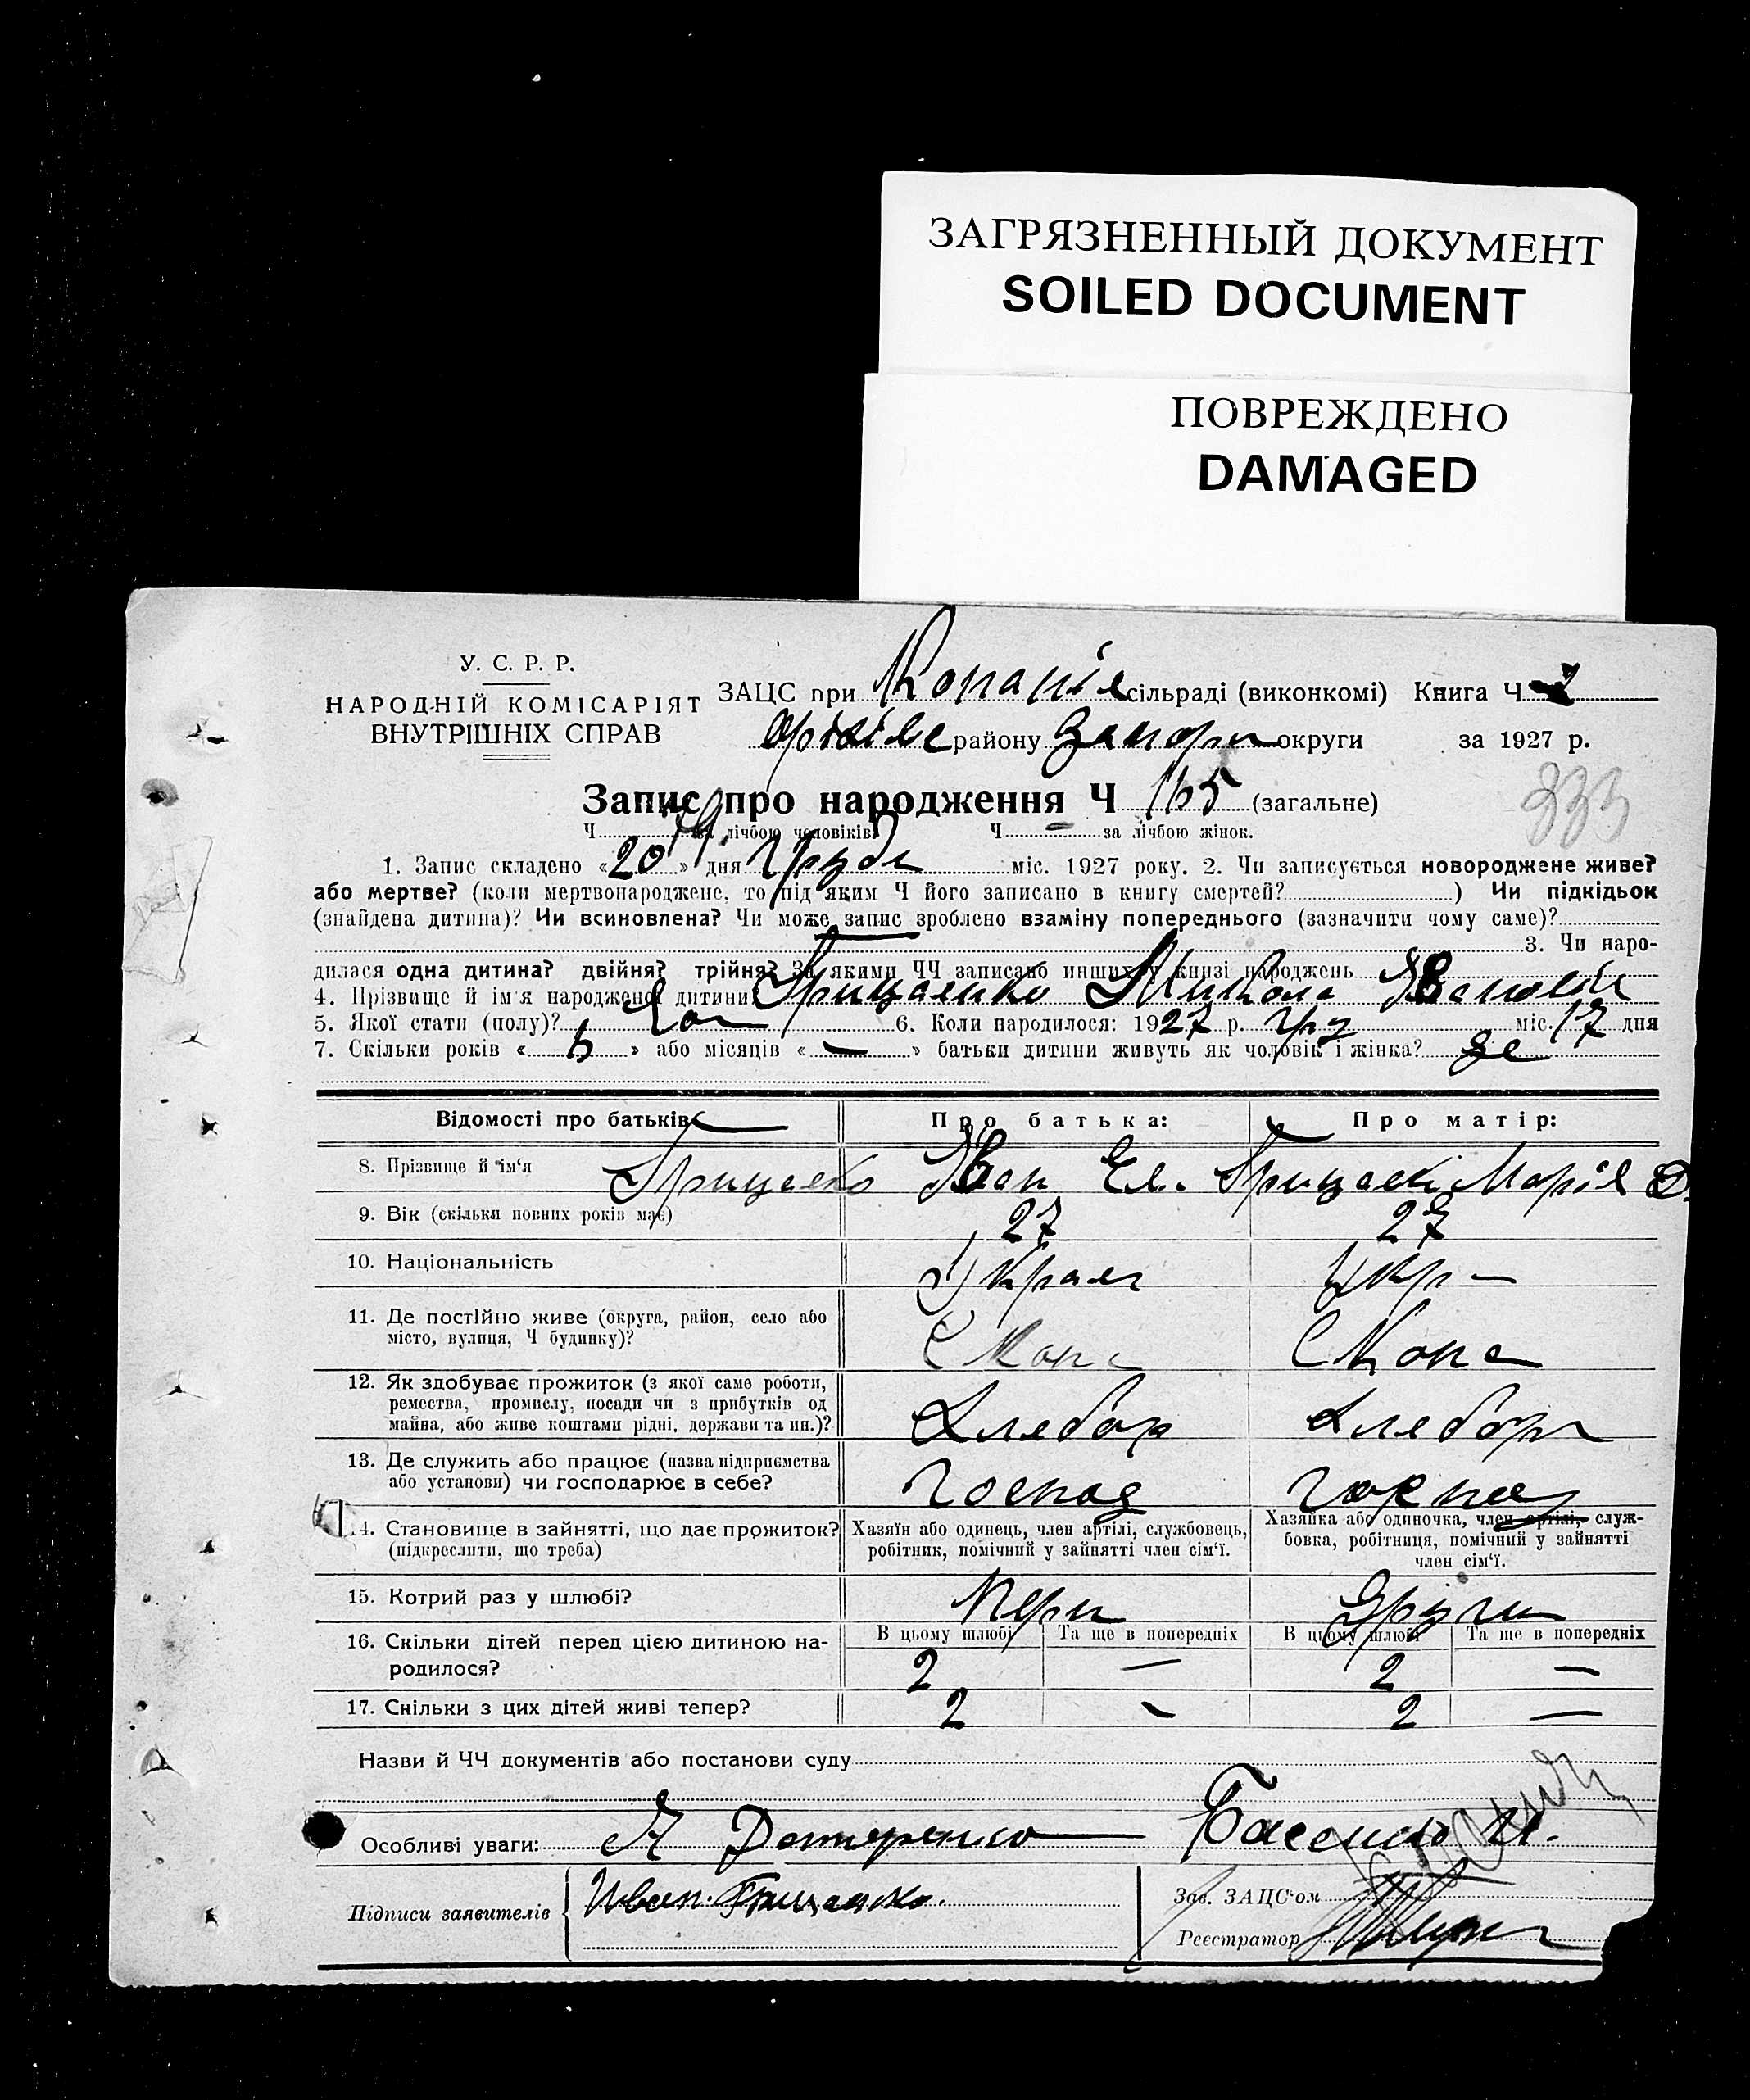 ЗАГРЯЗНЕННЫЙ ДОКУМЕНТ
SOILED DOCUMENT
ПОВРЕЖДЕНО
DAMAGED
У. С. Р. Р.
НАРОДНІЙ КОМІСАРІЯТ
ВНУТРІШНІХ СПРАВ
ЗАЦС при Копанів сільраді (виконкомі) Книга Ч 2
Оріхів району Запорі округи за 1927 р.
Запис про народження Ч 165 (загальне)
333
Ч 79 за лічбою чоловіків. Ч — за лічбою жінок.
1. Запис складено «20» дня Груд міс. 1927 року. 2. Чи записується новороджене живе?
або мертве? (коли мертвонароджене, то під яким Ч його записано в книгу смертей? ) Чи підкідьок
(знайдена дитина)? Чи всиновлена? Чи може запис зроблено взаміну попереднього (зазначити чому саме)?
3. Чи наро-
дилася одна дитина? двійня? трійня? За якими ЧЧ записано инших у книзі народжень
4. Прізвище й ім'я народженої дитини? Грищенко Микола Іванов
5. Якої стати (полу)? 6. Коли народилося: 1927 р. Гру міс. 17 дня
7. Скільки років « » або місяців « — » батьки дитини живуть як чоловік і жінка?
Відомості про батьків Про батька: Про матір:
8. Прізвище й ім'я Грищенко Іван Ев. Грищенк Марія Д.
9. Вік (скільки повних років має) 27 27
10. Національність Украін Укр —
11. Де постійно живе (округа, район, село або
місто, вулиця, Ч будинку)? С Копа С Копа
12. Як здобуває прожиток (з якої саме роботи,
ремества, промислу, посади чи з прибутків од
майна, або живе коштами рідні, держави та ин.)? Хлебор Хлебор
13. Де служить або працює (назва підприємства
або установи) чи господарює в себе? Господ Господ
14. Становище в зайнятті, що дає прожиток?
(підкреслити, що треба)
Хазяїн або одинець, член артілі, службовець,
робітник, помічний у зайнятті член сім'ї.
Хазяйка або одиночка, член артілі, служ-
бовка, робітниця, помічний у зайнятті
член сім'ї.
15. Котрий раз у шлюбі? Перш Други
16. Скільки дітей перед цією дитиною на-
родилося?
В цьому шлюбі Та ще в попередніх В цьому шлюбі Та ще в попередніх
2 — 2 —
17. Скільки з цих дітей живі тепер? 2 — 2 —
Назви й ЧЧ документів або постанови суду
Особливі уваги:
Підписи заявителів Иван Грищенко.
Зав. ЗАЦС'ом
Реєстратор